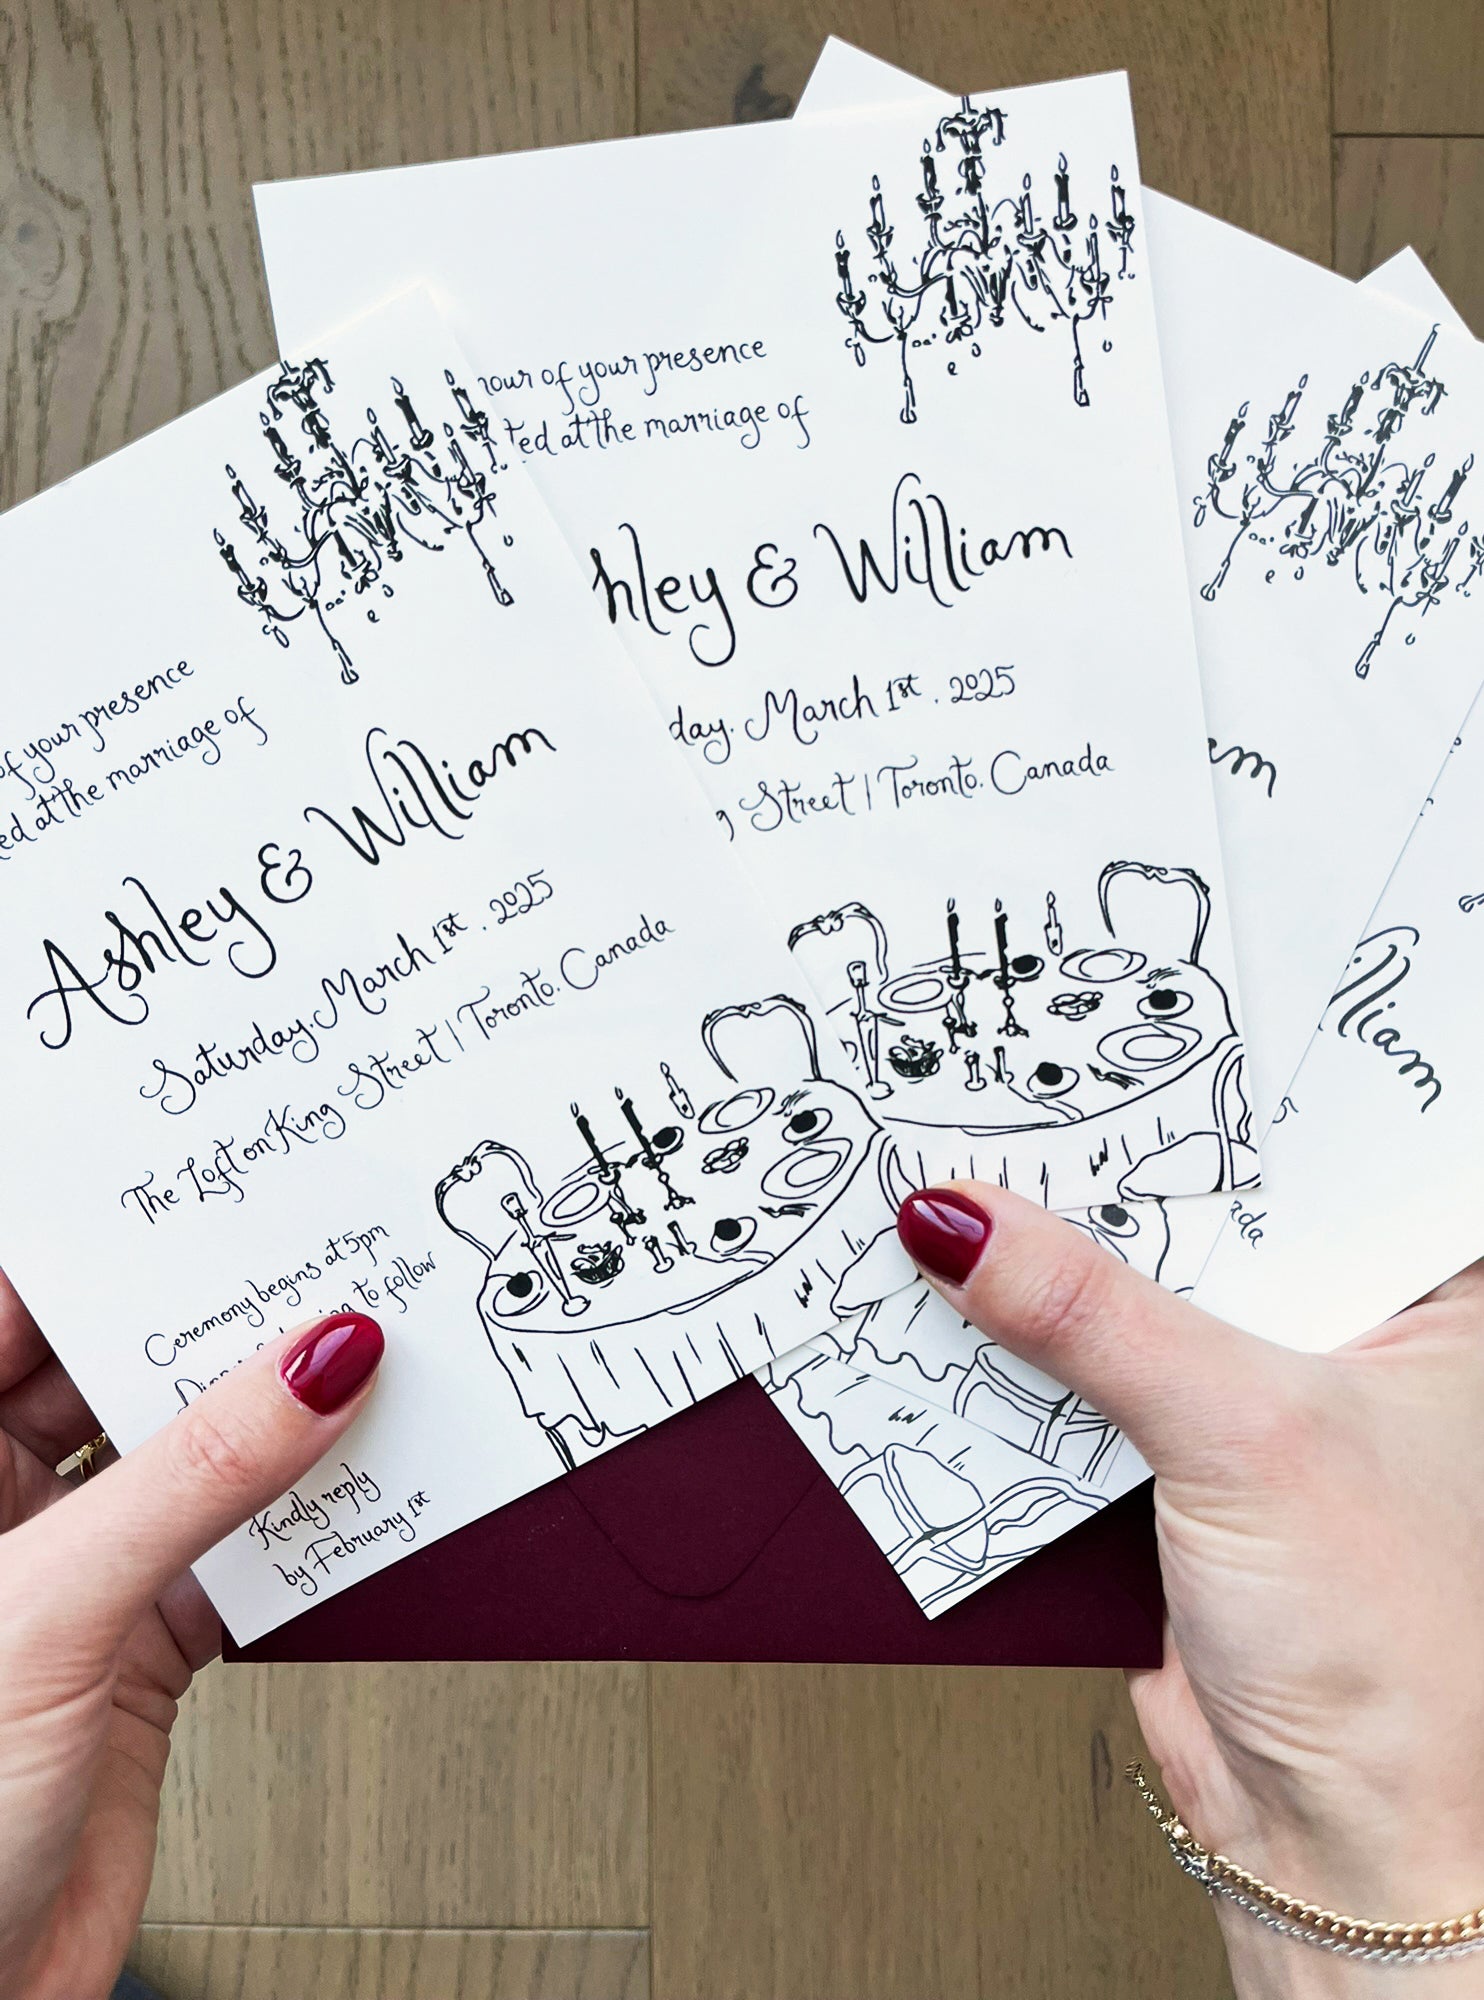 of your presence
at the marriage of
Ashley & William
Saturday. March 1st. 2025
The Loft on King Street | Toronto. Canada
Ceremony begins at 5pm
to follow
Kindly reply
by February 1st
of your presence
at the marriage of
& William
March 1st. 2025
Street | Toronto. Canada